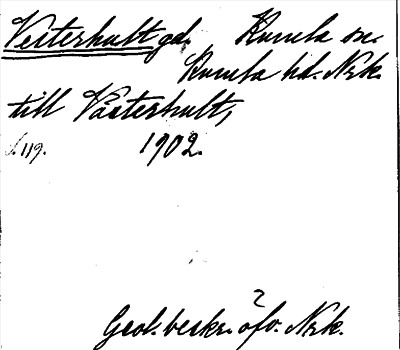 Vesterhult gd. Kumla sn.
Kumla hd. Nrk.
till Västerhult,
s. 119. 1902.
?
Geol. beskr. öfv. Nrk.